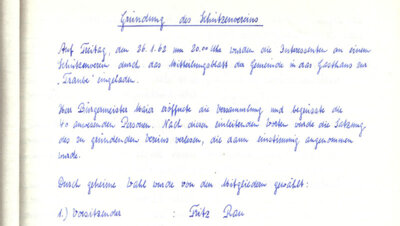 Gründung des Schützenvereins
Auf Freitag, den 26.1.62 um 20.00 Uhr wurden die Interessenten an einem
Schützenverein durch das Mitteilungsblatt der Gemeinde in das Gasthaus zur
"Traube" eingeladen.
Herr Bürgermeister Maier eröffnete die Versammlung und begrüsste die
40 anwesenden Personen. Nach einleitenden Worten wurde die Satzung,
des zu gründenden Vereins verlesen, die dann einstimmig angenommen
wurde.
Durch geheime Wahl wurde von den Mitgliedern gewählt:
1.) Vorsitzender : Fritz Rau